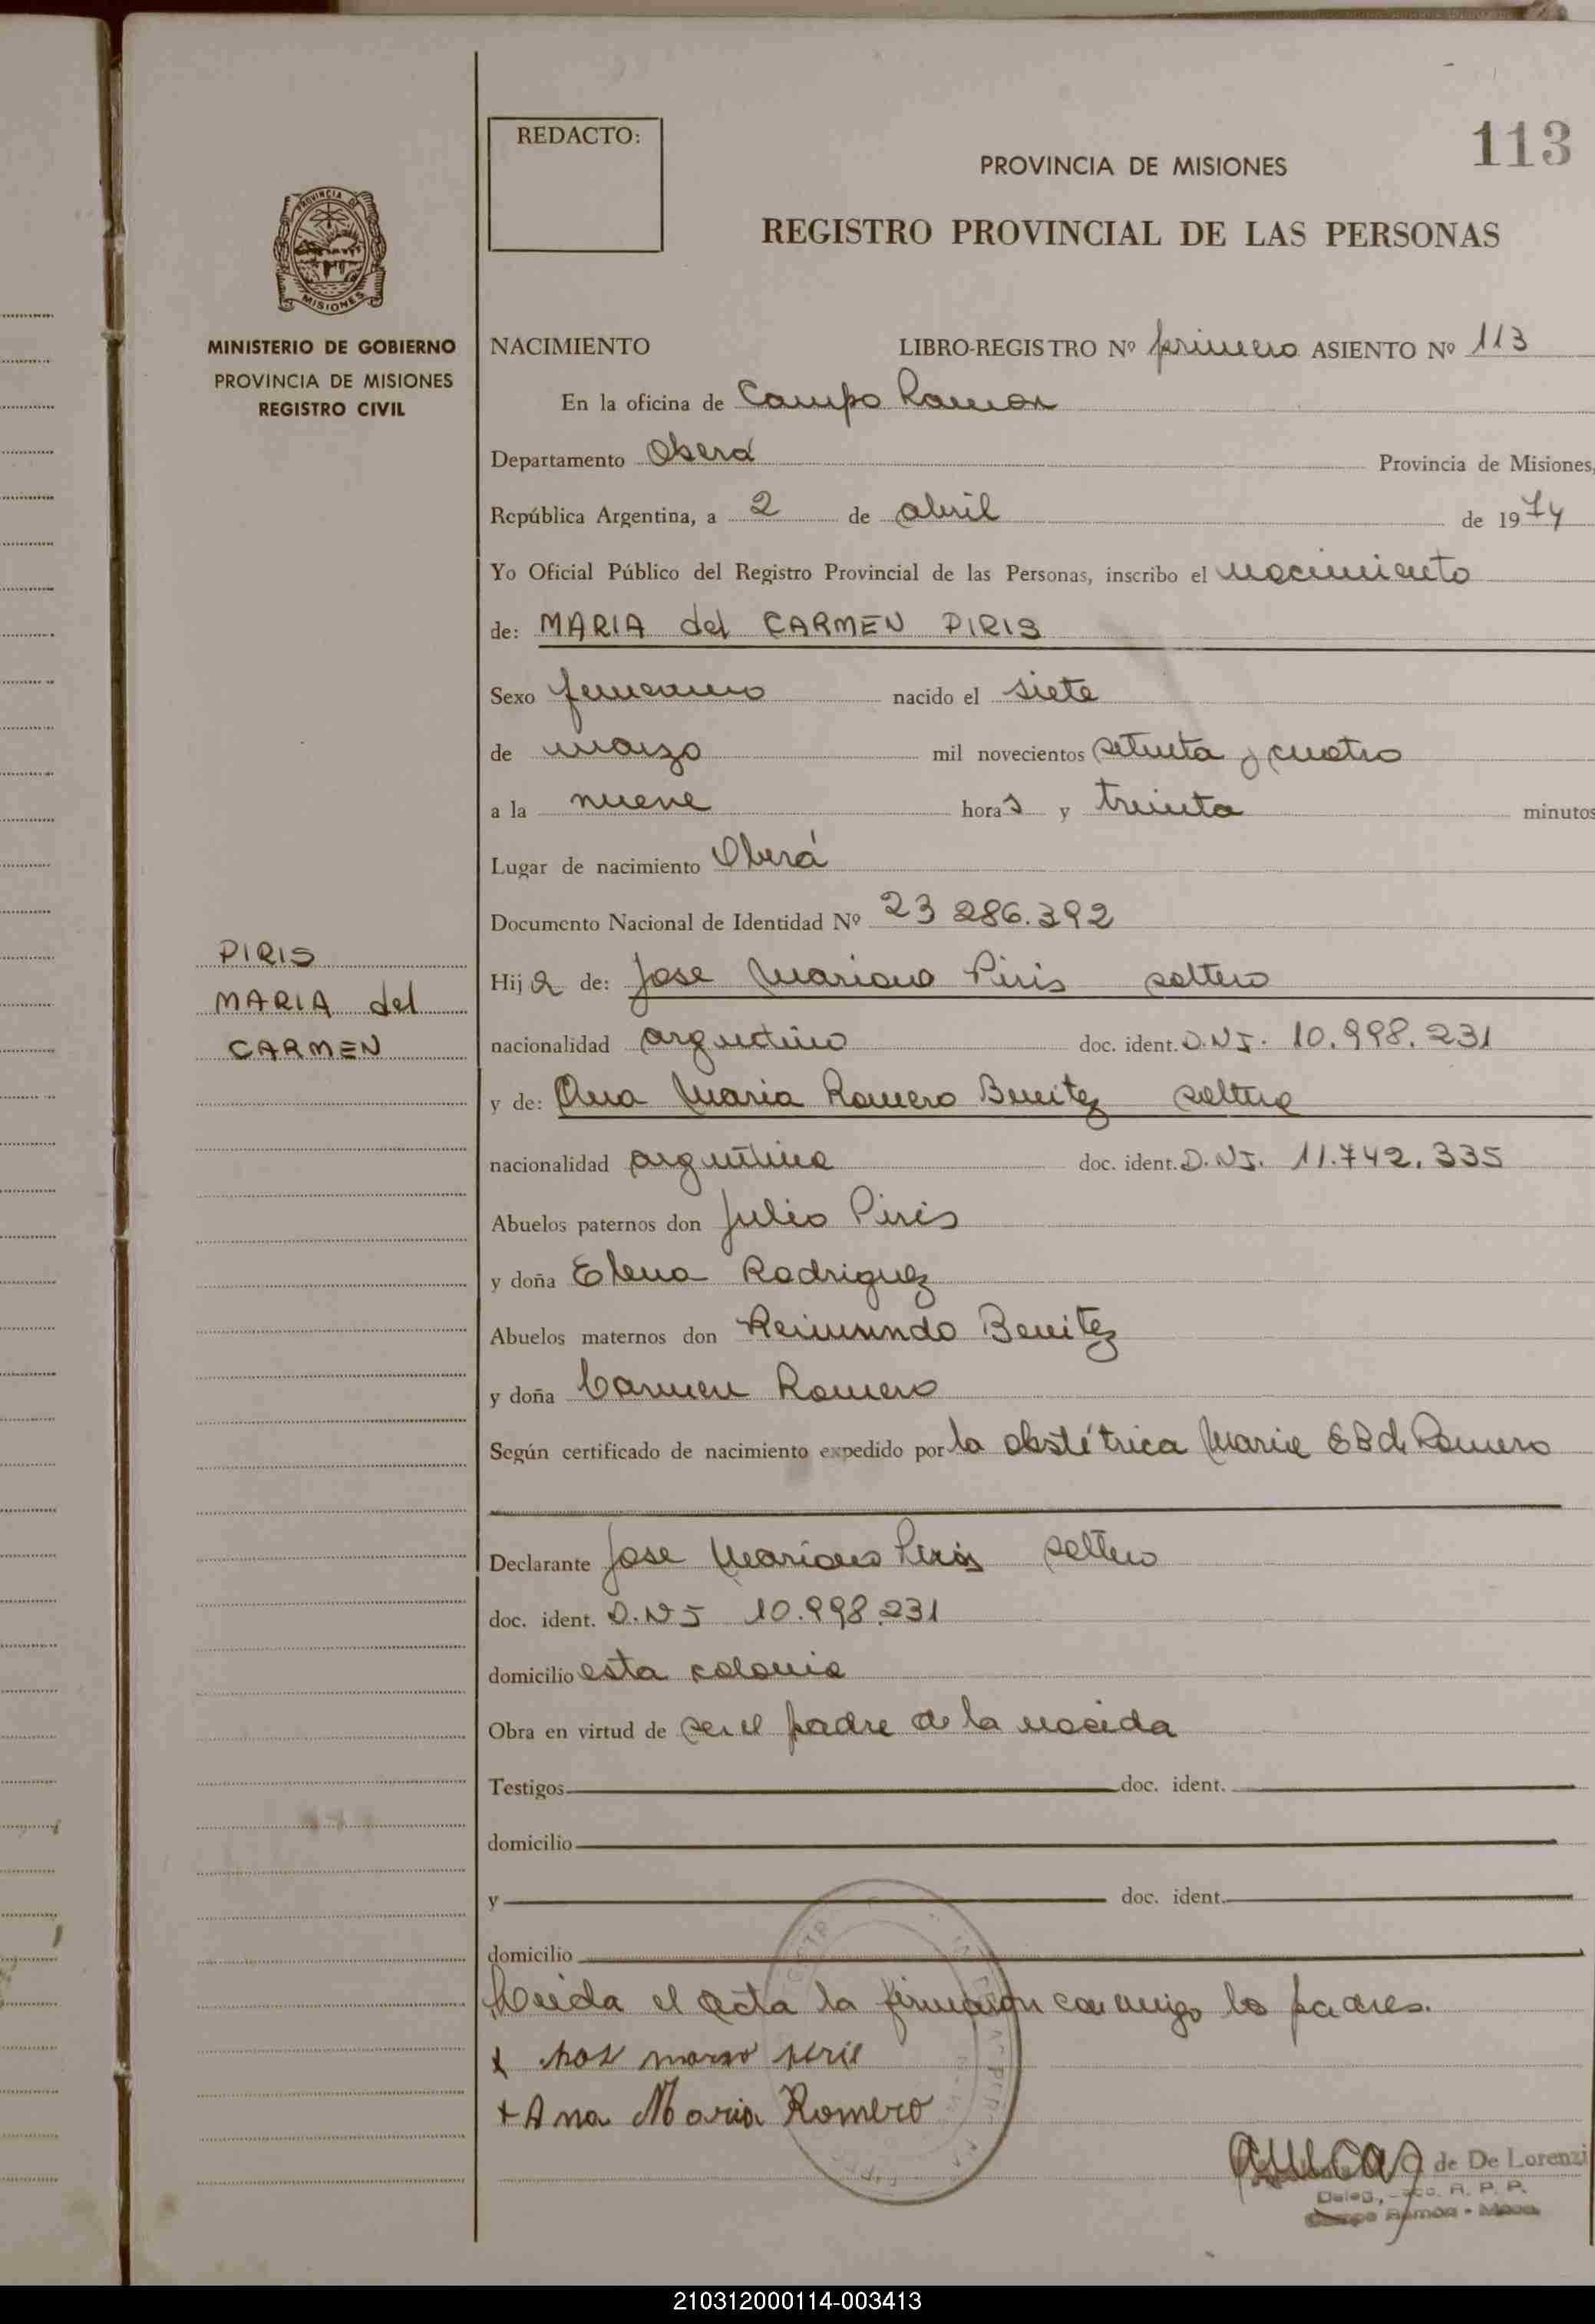 REDACTO:
113
PROVINCIA DE MISIONES
REGISTRO PROVINCIAL DE LAS PERSONAS
PROVINCIA DE
MISIONES
MINISTERIO DE GOBIERNO
PROVINCIA DE MISIONES
REGISTRO CIVIL
NACIMIENTO LIBRO-REGISTRO Nº primero ASIENTO Nº 113
En la oficina de Campo Ramon
Departamento Oberá Provincia de Misiones,
República Argentina, a 2 de abril de 1974
Yo Oficial Público del Registro Provincial de las Personas, inscribo el nacimiento
de: MARIA del CARMEN PIRIS
Sexo femenino nacido el siete
de marzo mil novecientos setenta y cuatro
a la nueve horas y treinta minutos
Lugar de nacimiento Oberá
Documento Nacional de Identidad Nº 23 286.392
PIRIS
MARIA del
CARMEN
Hija de: Jose Mariano Piris soltero
nacionalidad argentino doc. ident. D.N.I. 10.998.231
y de: Ana Maria Romero Benitez soltera
nacionalidad argentina doc. ident. D.N.I. 11.742.335
Abuelos paternos don Julio Piris
y doña Elena Rodriguez
Abuelos maternos don Reimundo Benitez
y doña Carmen Romero
Según certificado de nacimiento expedido por la obstétrica Maria E B de Romero
Declarante Jose Mariano Piris soltero
doc. ident. D.N.I 10.998.231
domicilio esta colonia
Obra en virtud de ser el padre de la nacida
Testigos doc. ident.
domicilio
y doc. ident.
domicilio
Leida el acta la firmaron conmigo los padres.
+ Ana Maria Romero
de De Lorenzi
R. P. P.
Campo Ramón - Mnes.
210312000114-003413